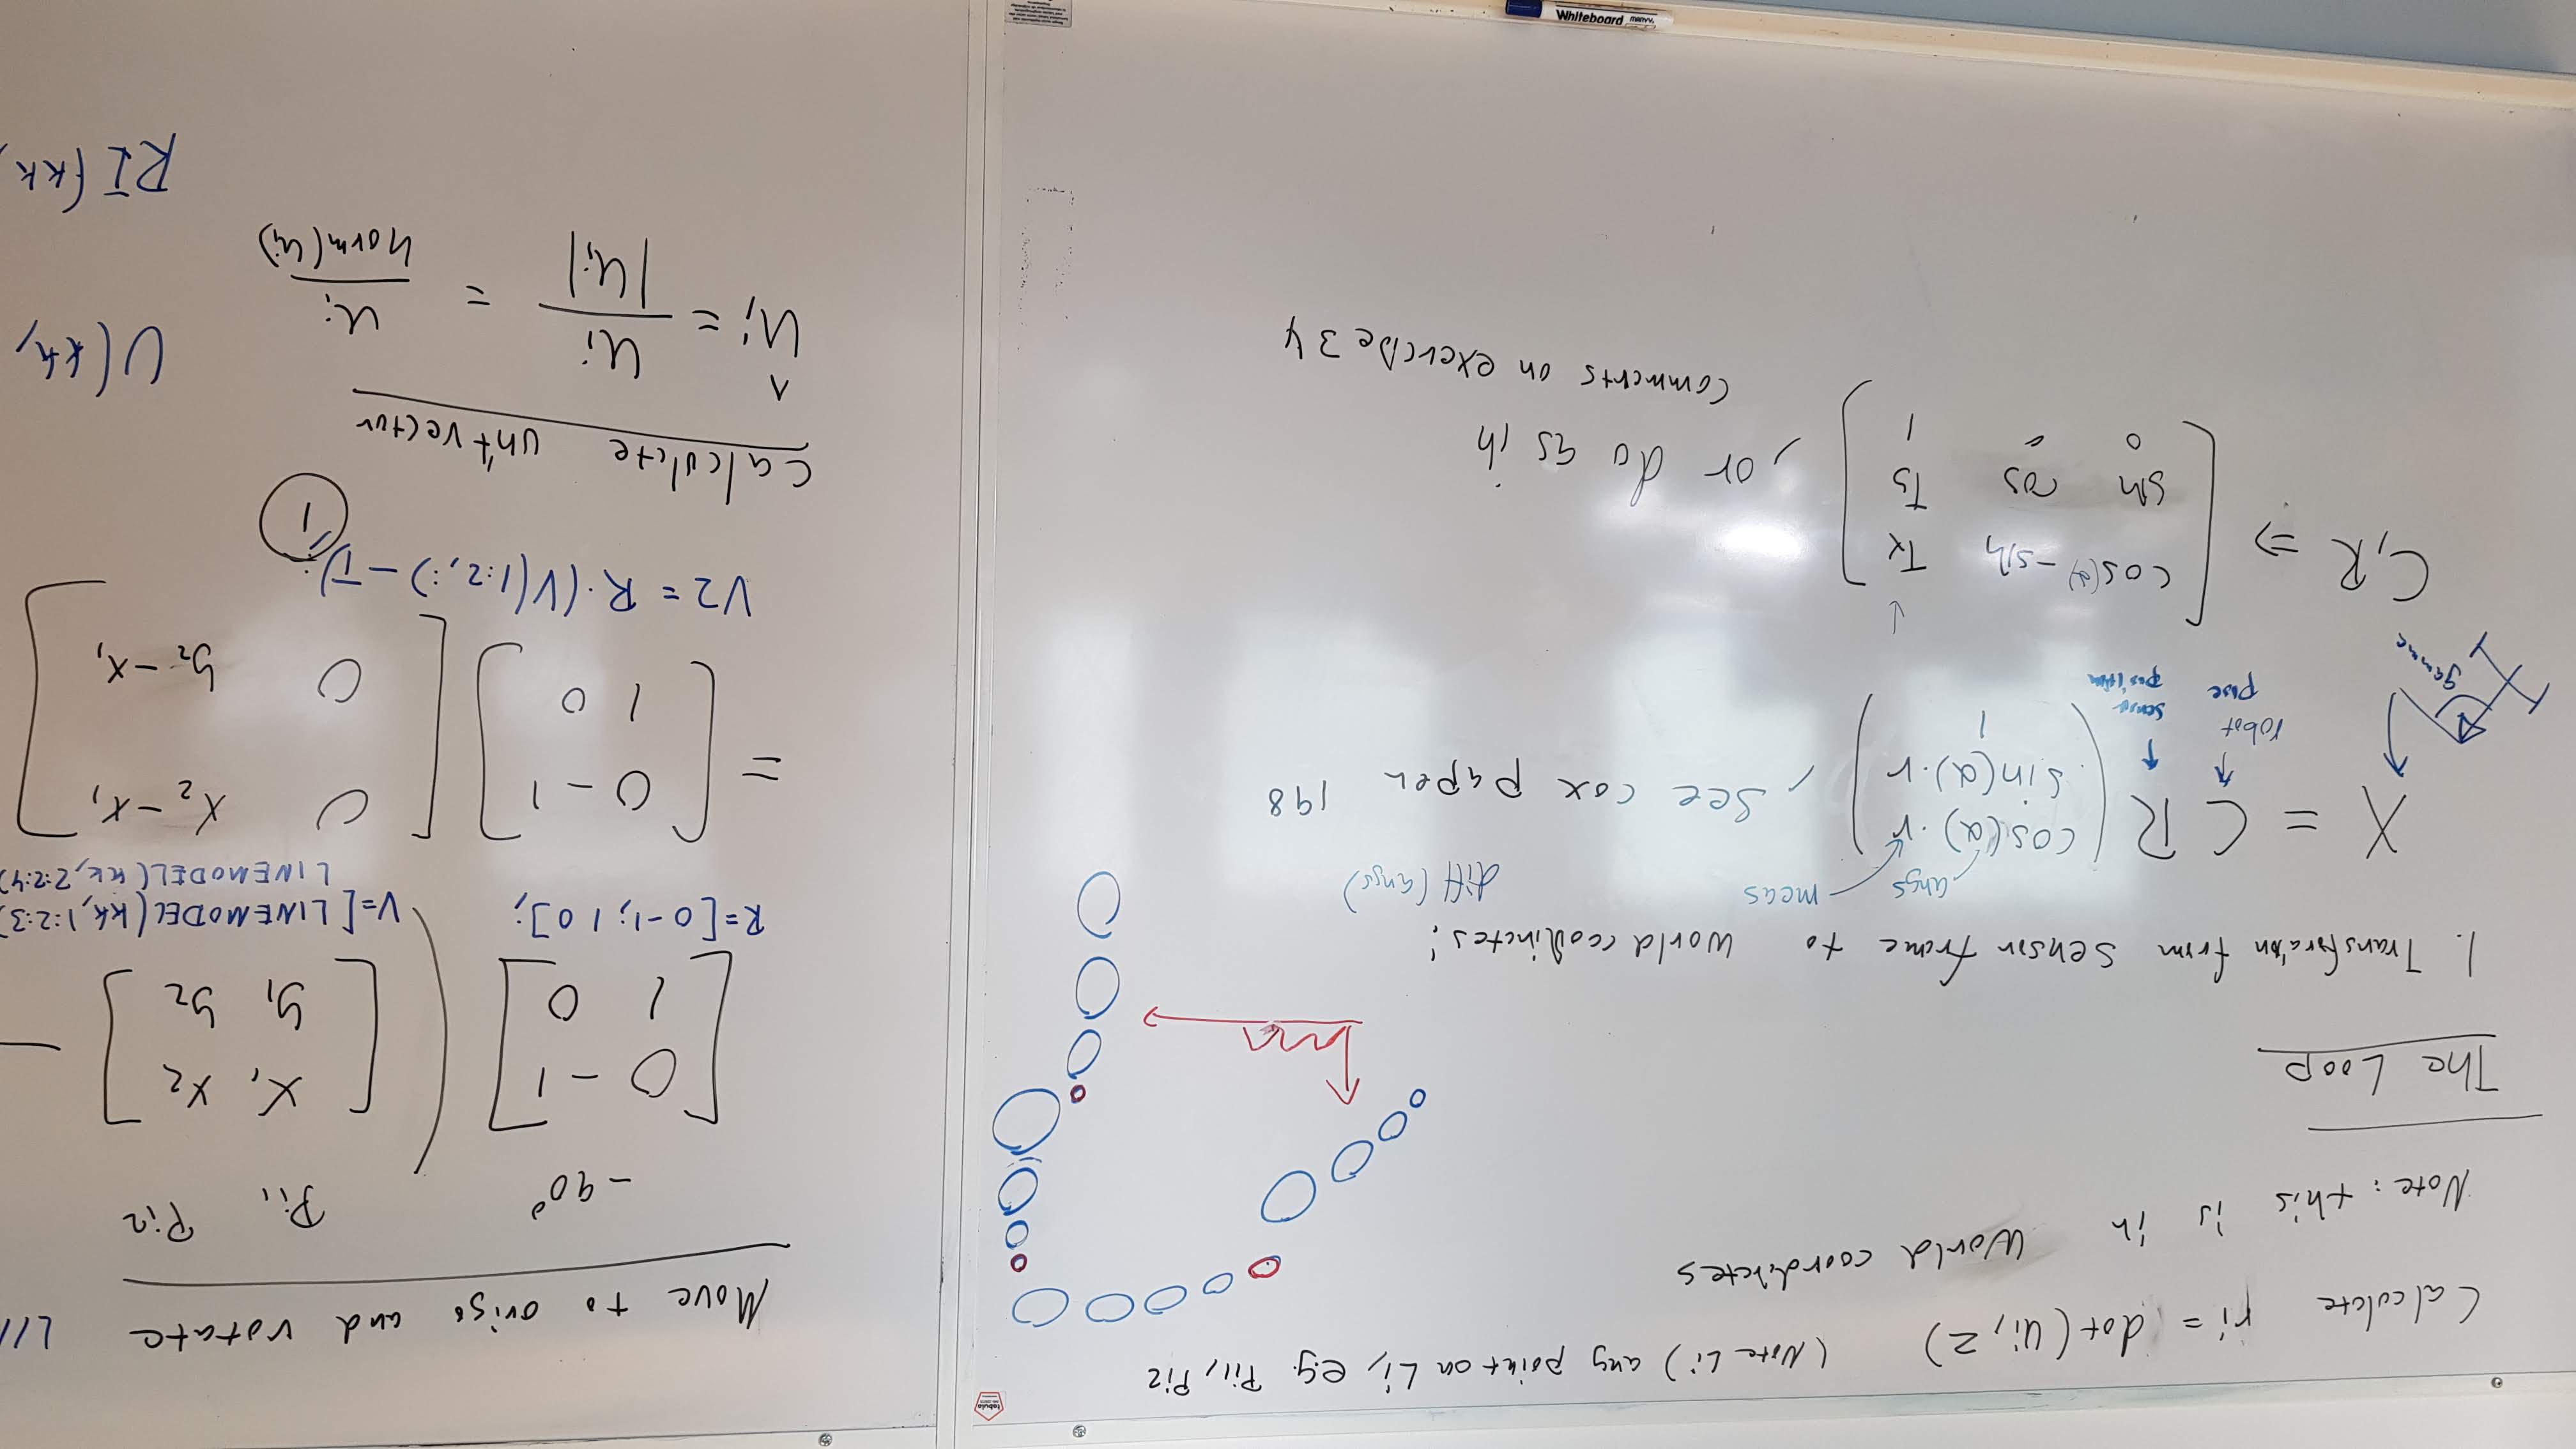 Calculate ri = dot(Ui, z) (Note Li) any point on Li, e.g. Pi1, Pi2
Note: this is in World coordinctes
The Loop
1. Transforaion from sensor frame to World coordinctes:
angs
meas
diff (angs)
X = C R ( cos(α)·r
sin(α)·r
1 ) , see cox paper 198
robot pose
sensor position
gamma
C,R ⇒ [ cos(α) -sin Tx
sin cos Ty
0 0 1 ] , or do as in
comments on exercise 3 4
tabula
Whiteboard
Move to origo and rotate
-90° Pi1 Pi2
[ 0 -1
1 0 ] ( [ x1 x2
y1 y2 ] -
R=[0 -1; 1 0]; V=[LINEMODEL(kk,1:2:3)
LINEMODEL(kk,2:2:4)
= [ 0 -1
1 0 ] [ 0 x2-x1
0 y2-x1 ]
V2 = R·(V(1:2,:) - T);
1
Calculcte unit vector
ûi = ui / |ui| = ui / norm(ui)
U(kk,
RI(kk,